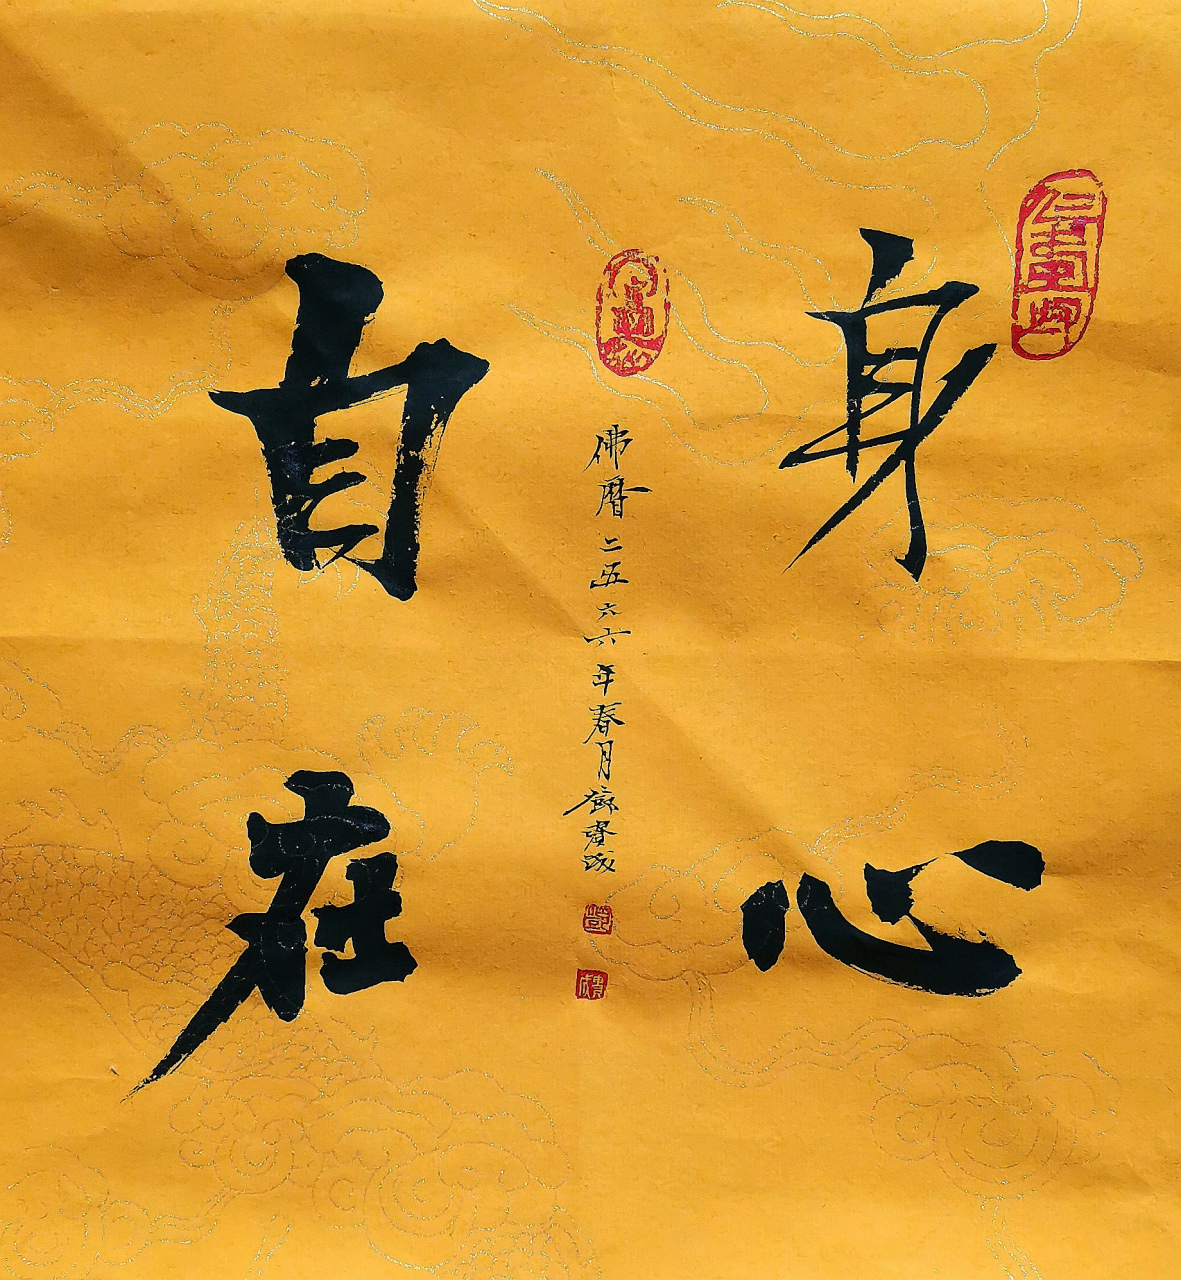 身心
自在
佛曆二五六六年春月鄧賡成